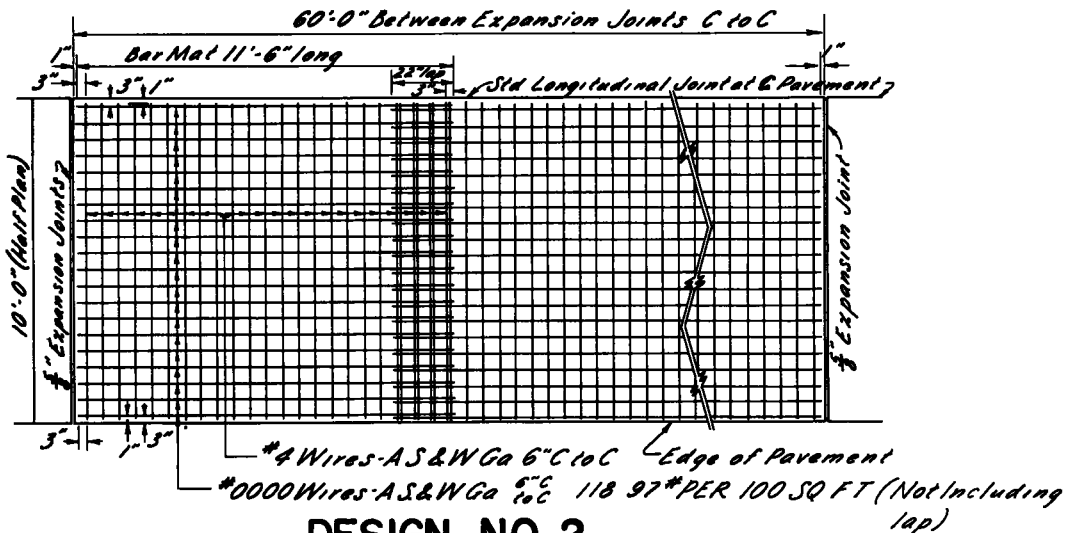 60'-0" Between Expansion Joints C to C
1"
Bar Mat 11'-6" long
1"
22" lap
3"
3" 1"
3"
Std Longitudinal Joint at ℄ Pavement
10'-0" (Half Plan)
5/8" Expansion Joints
5/8" Expansion Joint
3"
1" 3"
#4 Wires-AS&W Ga 6" C to C
Edge of Pavement
#0000 Wires-AS&W Ga 6" C to C 118 97# PER 100 SQ FT (Not Including lap)